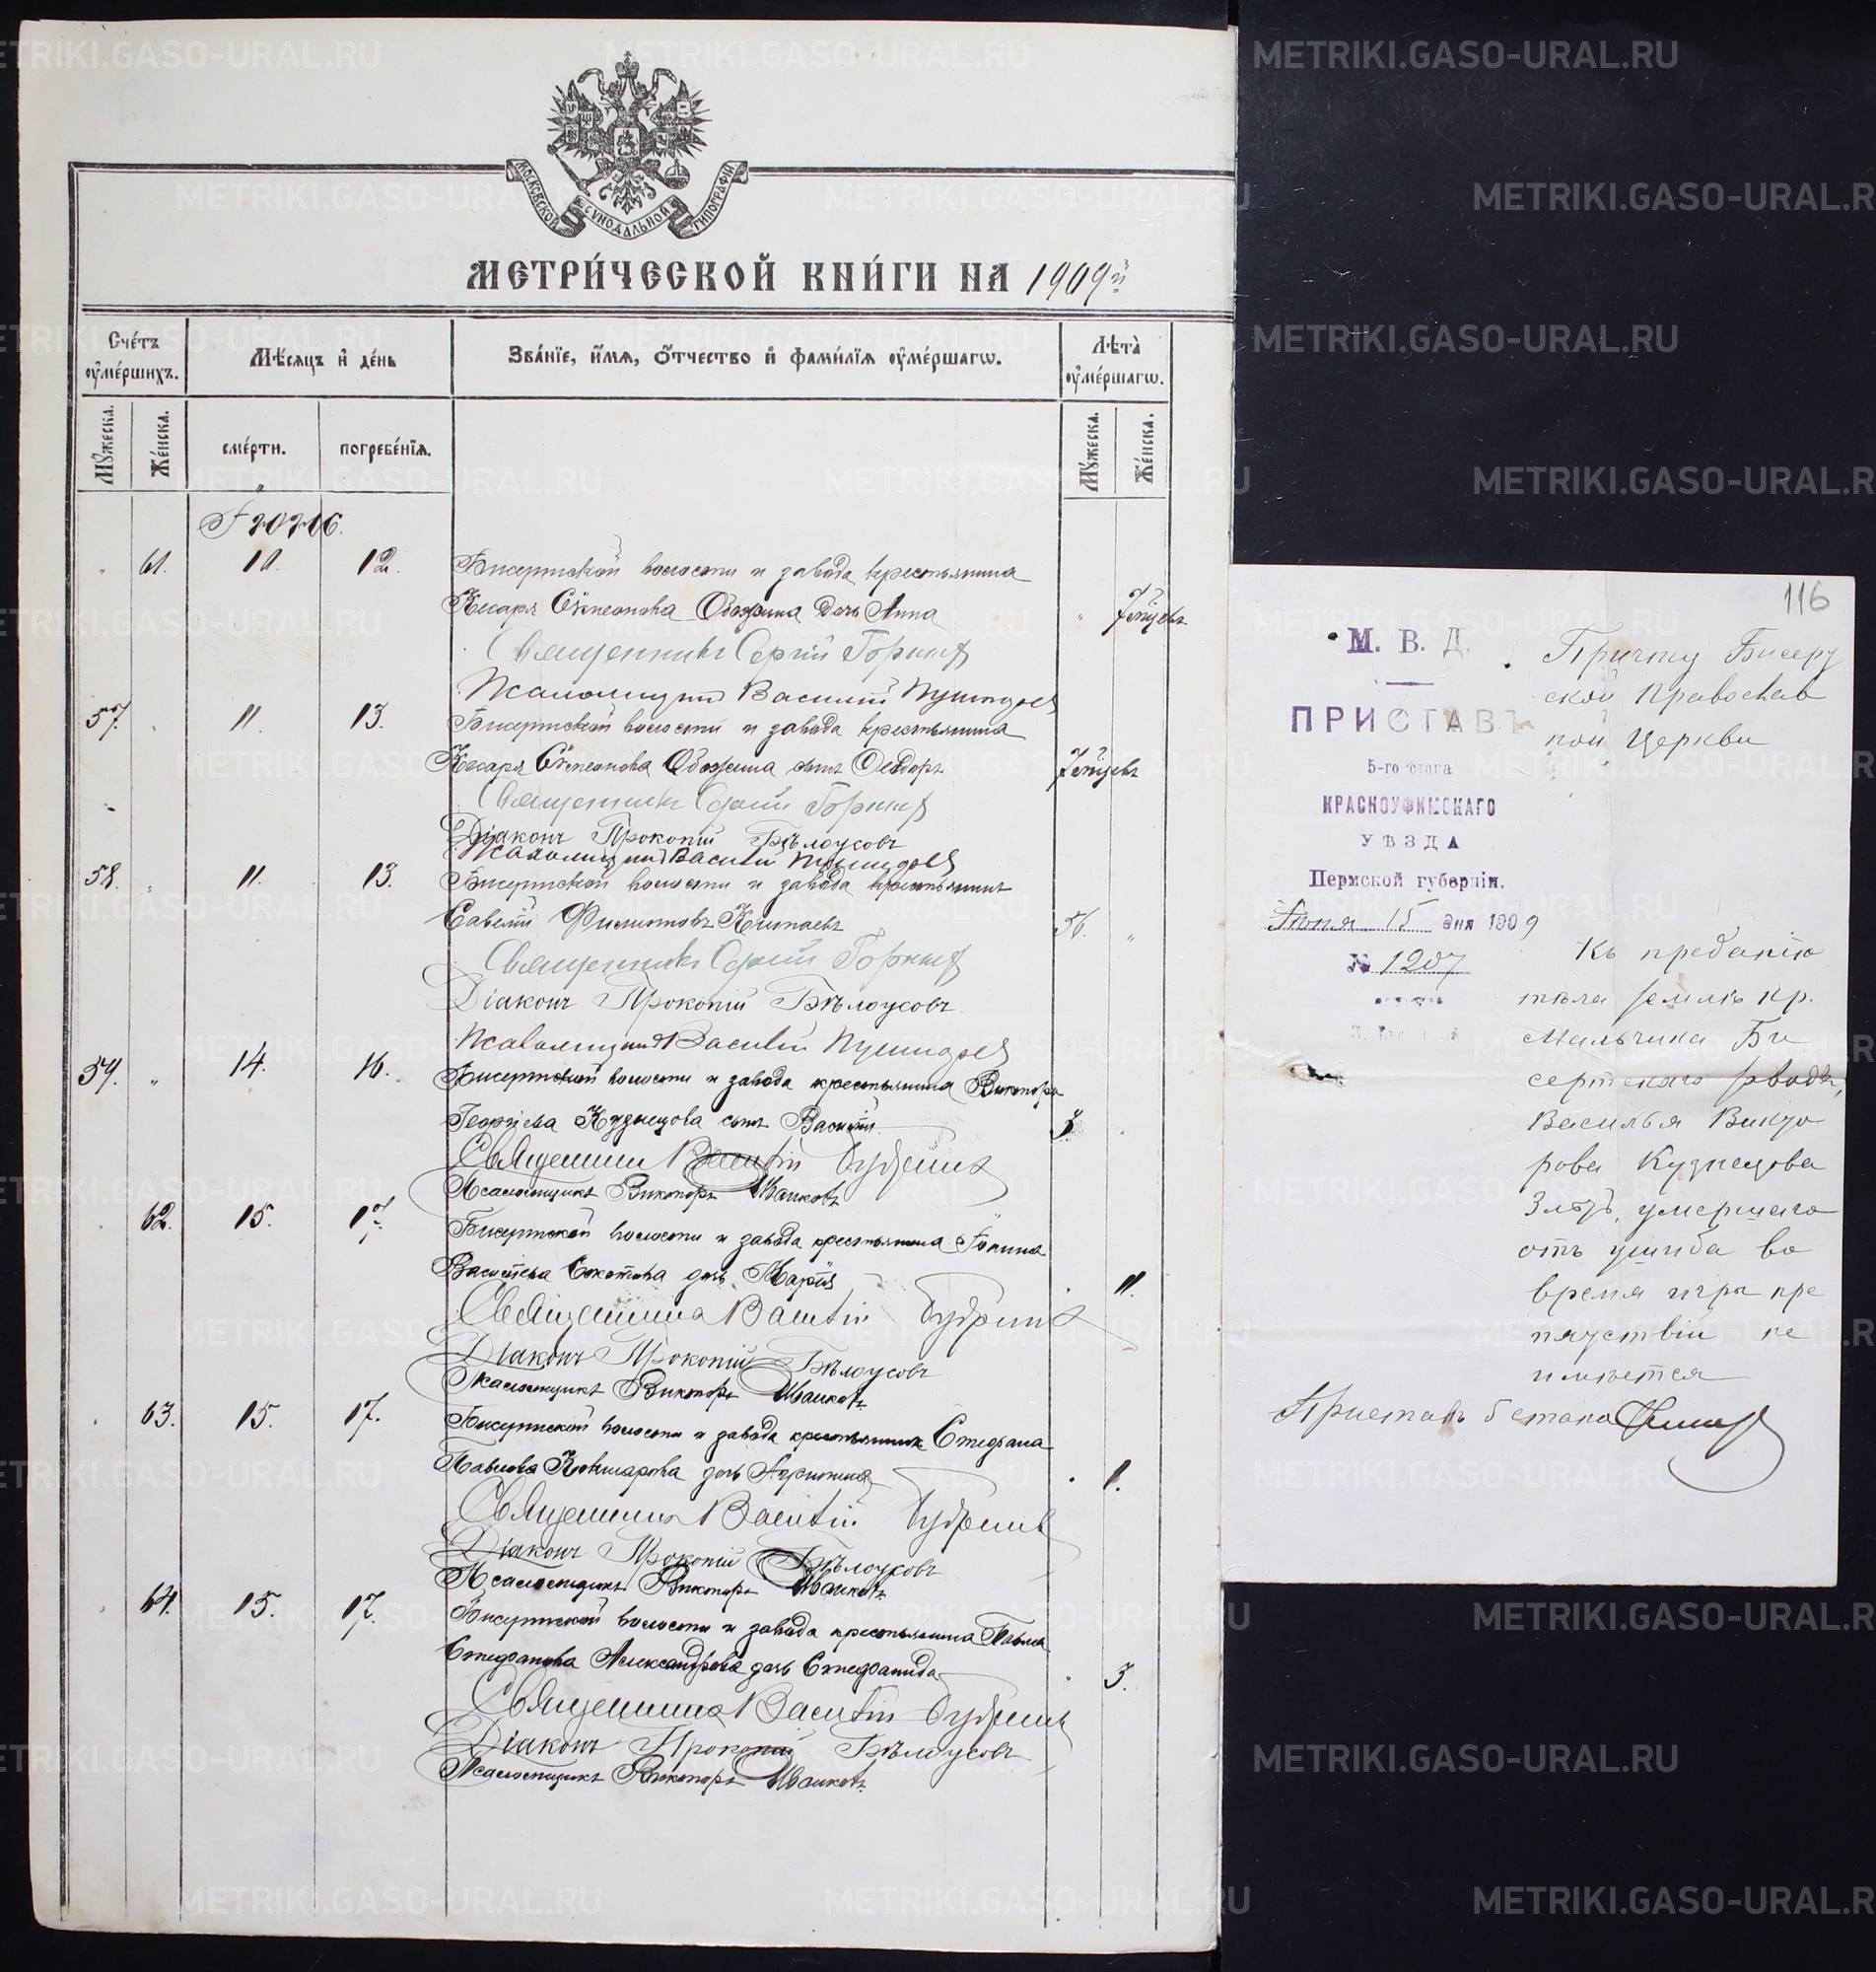 МОСКОВСКОЙ СѴНОДАЛЬНОЙ ТИПОГРАФІИ
МЕТРИ́ЧЕСКОЙ КНИ́ГИ НА 1909й
Сче́тъ ᲂу҆ме́ршихъ.
Мꙋ́жеска.
Же́нска.
Мѣ́сяцъ и҆ де́нь
сме́рти.
погребе́нїѧ.
Зва́нїе, и҆́мѧ, ѻ҆́тчество и҆ фами́лїѧ ᲂу҆ме́ршагѡ.
Лѣта̀ ᲂу҆ме́ршагѡ.
Мꙋ́жеска.
Же́нска.
61. 11. 12. Бисертской волости и завода крестьянина
Кесаря Сѵмеонова Обожина дочь Анна
Священникъ Сергій Горныхъ
Псаломщикъ Василій
57. 11. 13. Бисертской волости и завода крестьянина
Кесаря Сѵмеонова Обожина сынъ Ѳеодоръ
Священникъ Сергій Горныхъ
Діаконъ Прокопій Бѣлоусовъ
Псаломщикъ Василій
58. 11. 13. Бисертской волости и завода крестьянинъ
Савелій Филипповъ Китаевъ 56.
Священникъ Сергій Горныхъ
Діаконъ Прокопій Бѣлоусовъ
Псаломщикъ Василій
59. 14. 16. Бисертской волости и завода крестьянина Виктора
Георгіева Кузнецова сынъ Василій 3.
Священникъ
Псаломщикъ Викторъ Ивановъ
62. 15. 17. Бисертской волости и завода крестьянина
Васильева дочь Марія 11.
Священникъ
Діаконъ Прокопій Бѣлоусовъ
Псаломщикъ Викторъ Ивановъ
63. 15. 17. Бисертской волости и завода крестьянина Стефана
Павлова дочь 1.
Священникъ
Діаконъ Прокопій Бѣлоусовъ
Псаломщикъ Викторъ Ивановъ
64. 15. 17. Бисертской волости и завода крестьянина Павла
Стефанова Александрова дочь Стефанида 3.
Священникъ
Діаконъ Прокопій Бѣлоусовъ
Псаломщикъ Викторъ Ивановъ
116
М. В. Д.
ПРИСТАВЪ
5-го стана
КРАСНОУФИМСКАГО
УѢЗДА
Пермской губерніи.
Іюня 15 дня 1909
№ 1207
Причту Бисерт
ской Православ
ной Церкви
Къ преданію
тѣла землѣ кр.
мальчика Би
сертскаго завода,
Василья Викто
рова Кузнецова
3 лѣтъ, умершаго
отъ ушиба во
время игры пре
пятствій не
имѣется
Приставъ 5 стана
METRIKI.GASO-URAL.RU